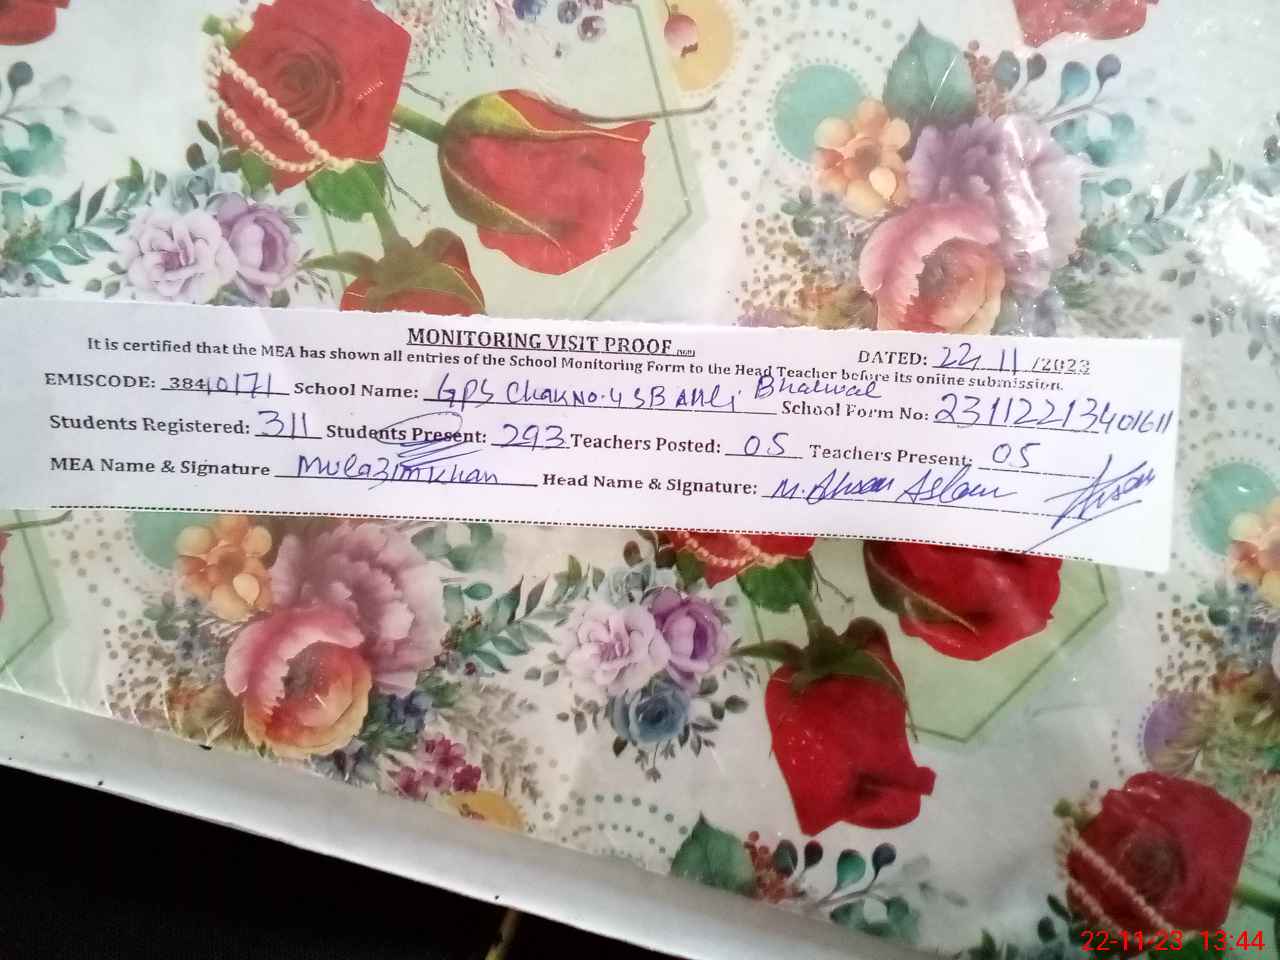 MONITORING VISIT PROOF
DATED: 22/11/2023
It is certified that the MEA has shown all entries of the School Monitoring Form to the Head Teacher before its online submission.
EMISCODE: 38410171 School Name: GPS Chak No. 4 SB Bhalwal School Form No: 23112213401611
Students Registered: 311 Students Present: 293 Teachers Posted: 05 Teachers Present: 05
MEA Name & Signature Mulazim Khan Head Name & Signature: M. Ahsan Aslam
22-11-23 13:44